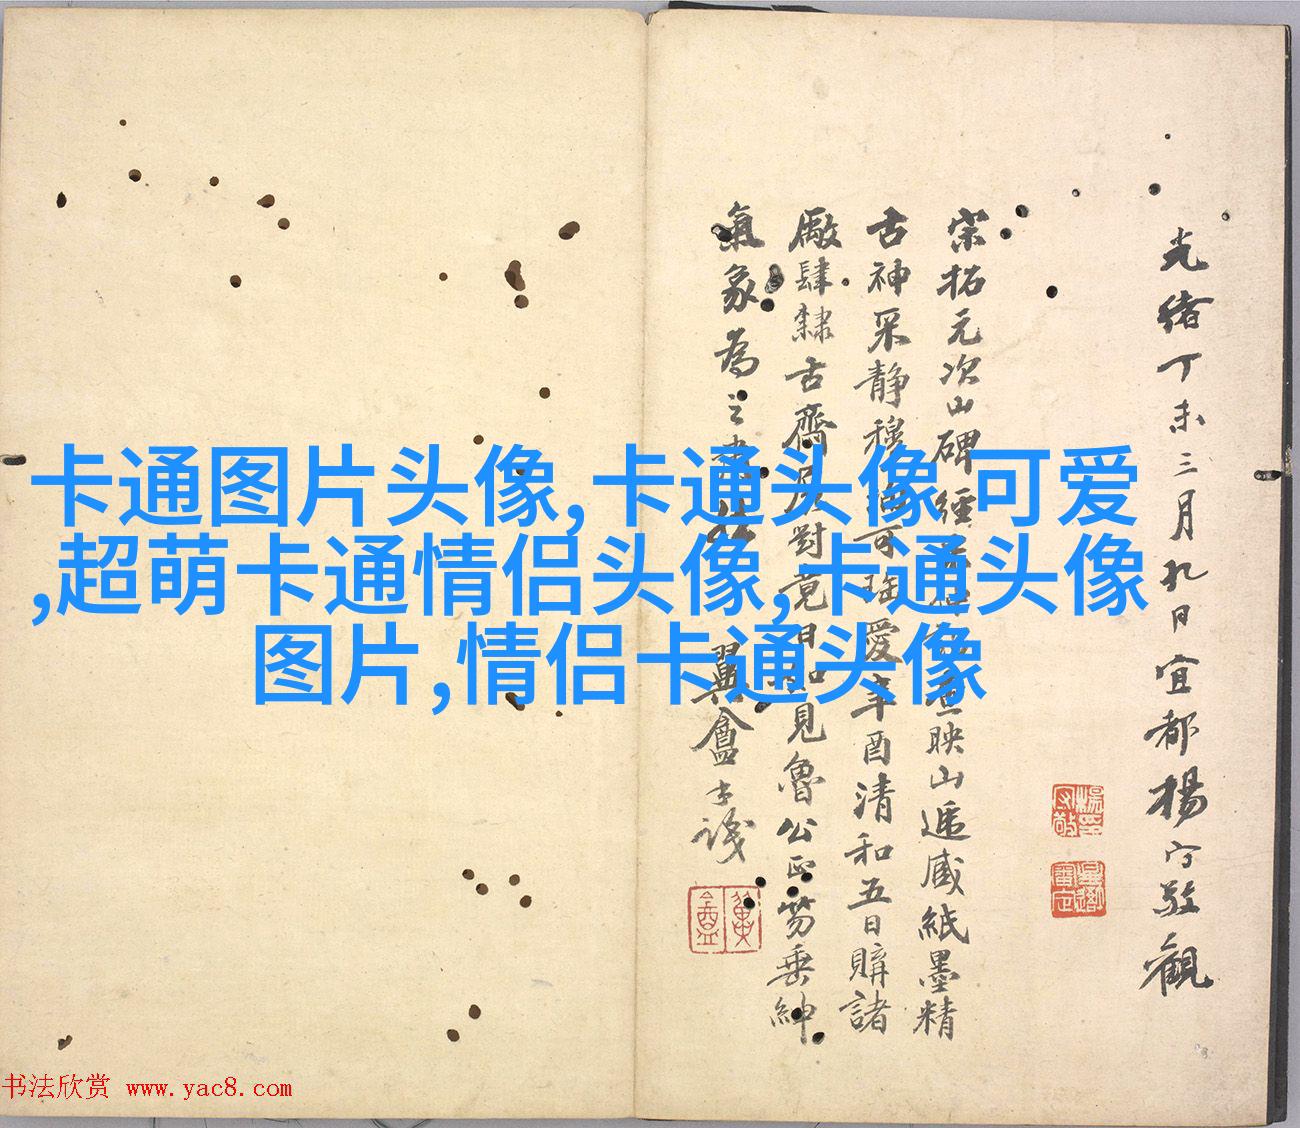 光緒丁未三月九日宜都楊守敬觀
宋拓元次山碑經映山遞咸紙墨精
古神采静穆可愛辛酉清和五日購諸
廠肆隸古齋展對竟日如見魯公正笏垂紳
氣象為之
翼盦士識
卡通图片头像,卡通头像 可爱
,超萌卡通情侣头像,卡通头像
图片,情侣卡通头像
书法欣赏 www.yac8.com